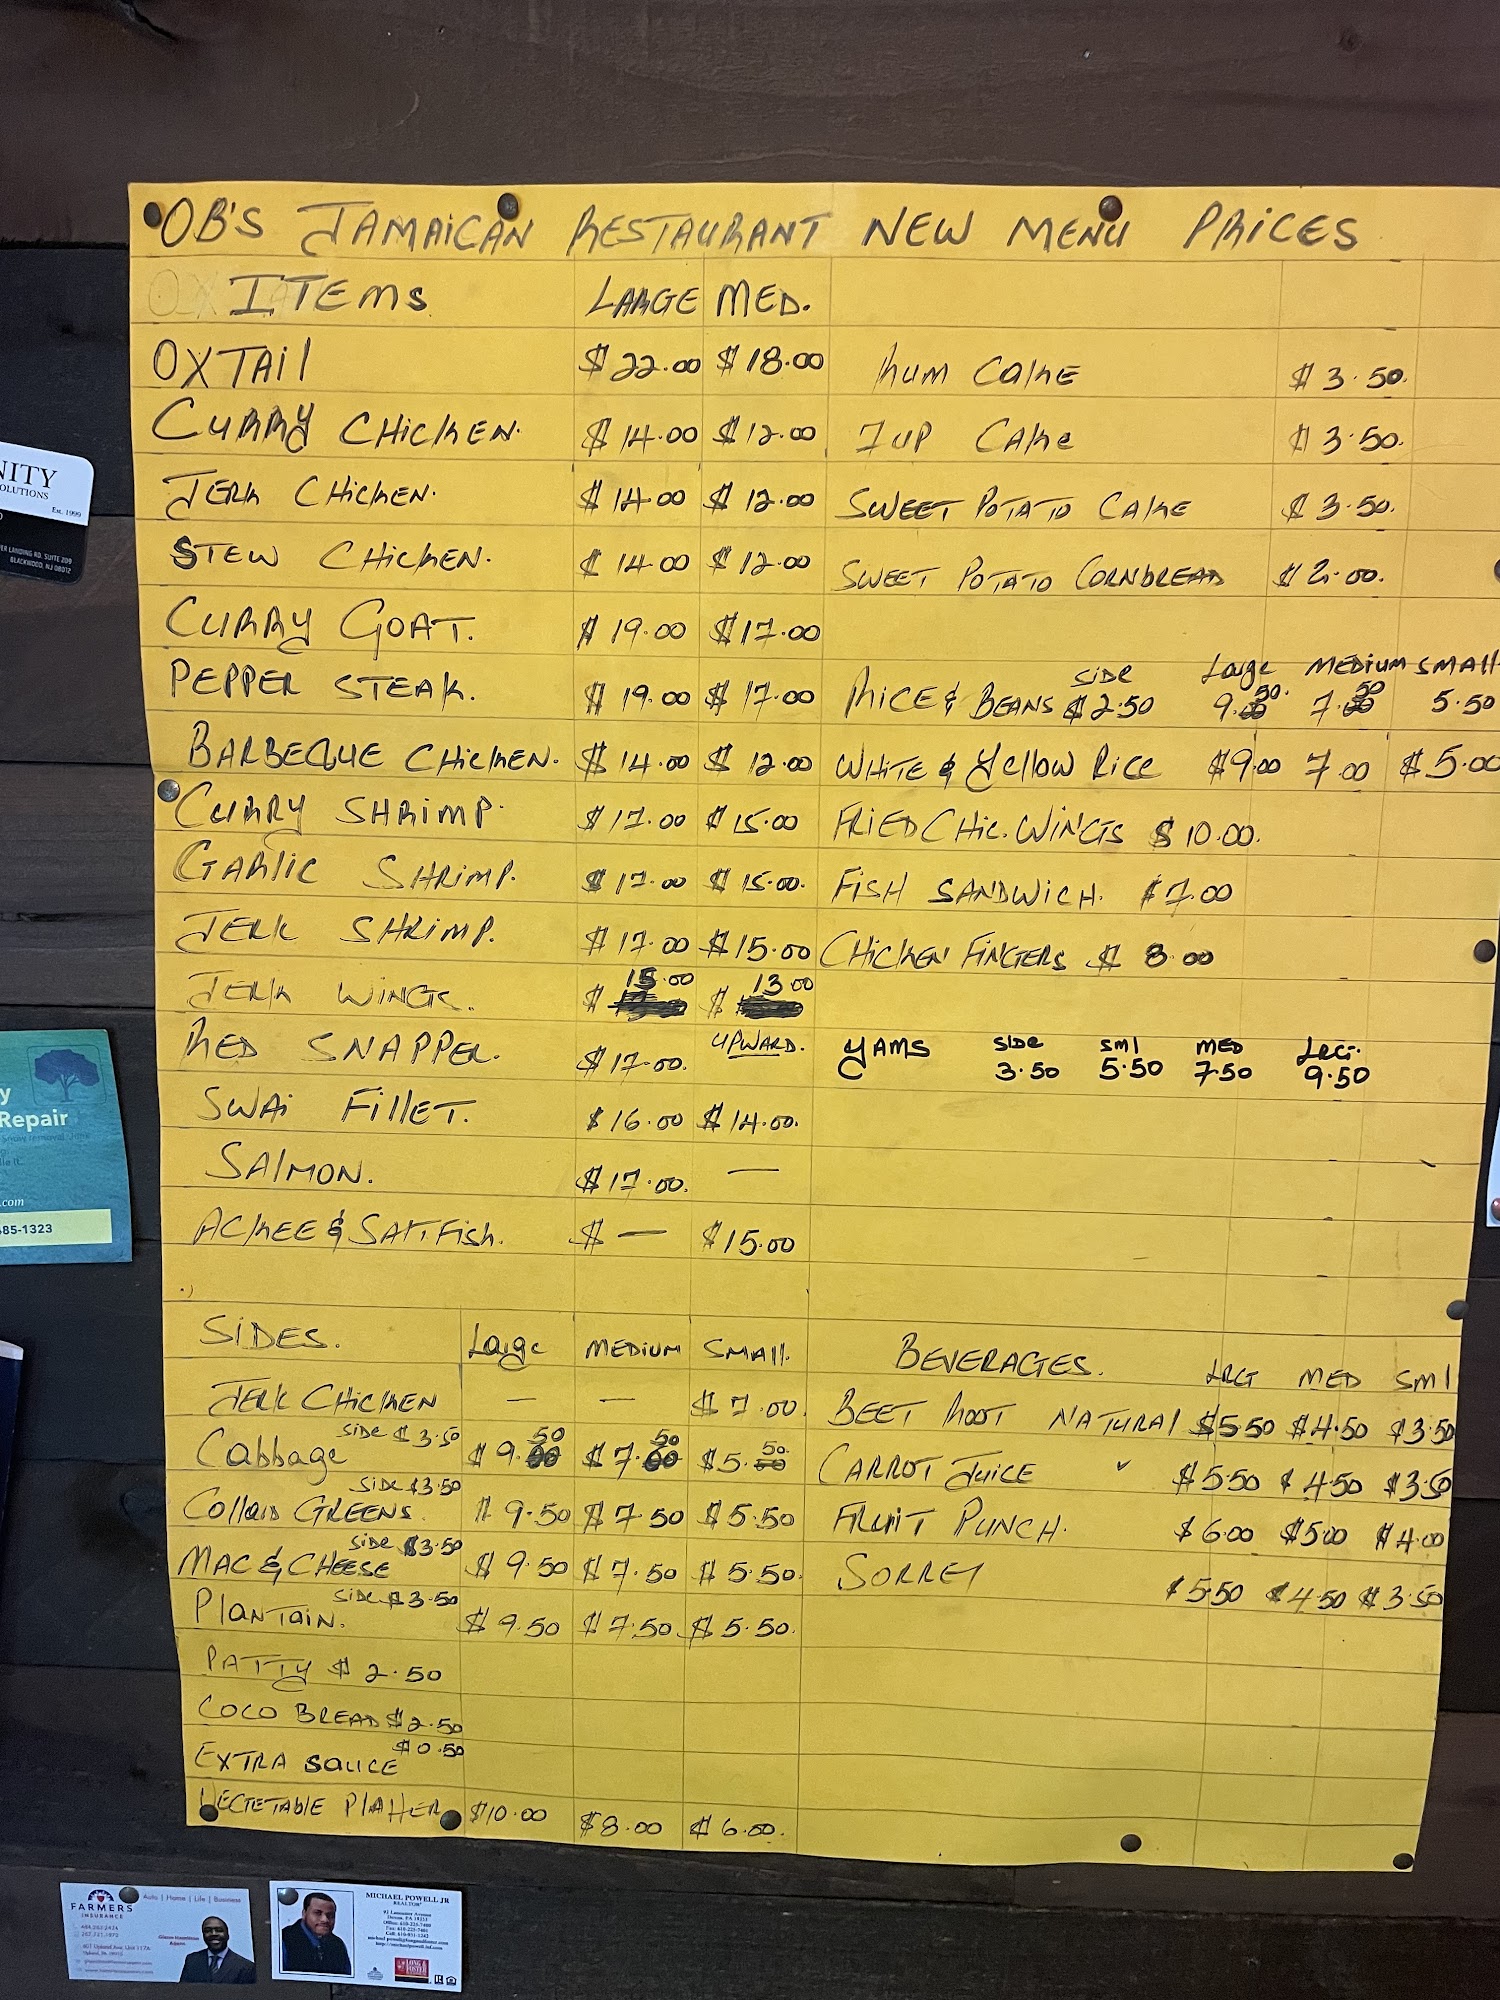 OB'S JAMAICAN RESTAURANT NEW MENU PRICES
ITEMS LARGE MED.
OXTAIL $22.00 $18.00 RUM CAKE $3.50.
CURRY CHICKEN. $14.00 $12.00 7UP CAKE $3.50.
JERK CHICKEN. $14.00 $12.00 SWEET POTATO CAKE $3.50.
STEW CHICKEN. $14.00 $12.00 SWEET POTATO CORNBREAD $2.00.
CURRY GOAT. $19.00 $17.00
SIDE Large MEDIUM SMALL
PEPPER STEAK. $19.00 $17.00 RICE & BEANS $2.50 9.50. 7.50 5.50
BARBEQUE CHICKEN. $14.00 $12.00 WHITE & Yellow RICE $9.00 7.00 $5.00
CURRY SHRIMP. $17.00 $15.00 FRIED CHIC. WINGS $10.00.
GARLIC SHRIMP. $17.00 $15.00. FISH SANDWICH. $7.00
JERK SHRIMP. $17.00 $15.00 CHICKEN FINGERS $8.00
JERK WINGS. $15.00 $13.00
RED SNAPPER. $17.00. UPWARD. YAMS SIDE 3.50 SMl 5.50 MED 7.50 LRG. 9.50
SWAI FILLET. $16.00 $14.00.
SALMON. $17.00. —
ACKEE & SALTFISH. $ — $15.00
SIDES. Large MEDIUM SMALL. BEVERAGES. LRG MED SMl
JERK CHICKEN — — $7.00. BEET ROOT NATURAL $5.50 $4.50 $3.50
Cabbage SIDE $3.50 $9.50 $7.50 $5.50. CARROT JUICE " $5.50 $4.50 $3.50
Collard GREENS. SIDE $3.50 $9.50 $7.50 $5.50 FRUIT PUNCH. $6.00 $5.00 $4.00
MAC & CHEESE SIDE $3.50 $9.50 $7.50 $5.50. SORREL $5.50 $4.50 $3.50
PLANTAIN. SIDE $3.50 $9.50 $7.50 $5.50.
PATTY $2.50
COCO BREAD $2.50
EXTRA SAUCE $0.50
VEGETABLE PLATTER $10.00 $8.00 $6.00.
NITY
OLUTIONS
Est. 1999
BLACKWOOD, NJ 08012
y
Repair
.com
685-1323
FARMERS
INSURANCE
Auto | Home | Life | Business
MICHAEL POWELL JR
REALTOR